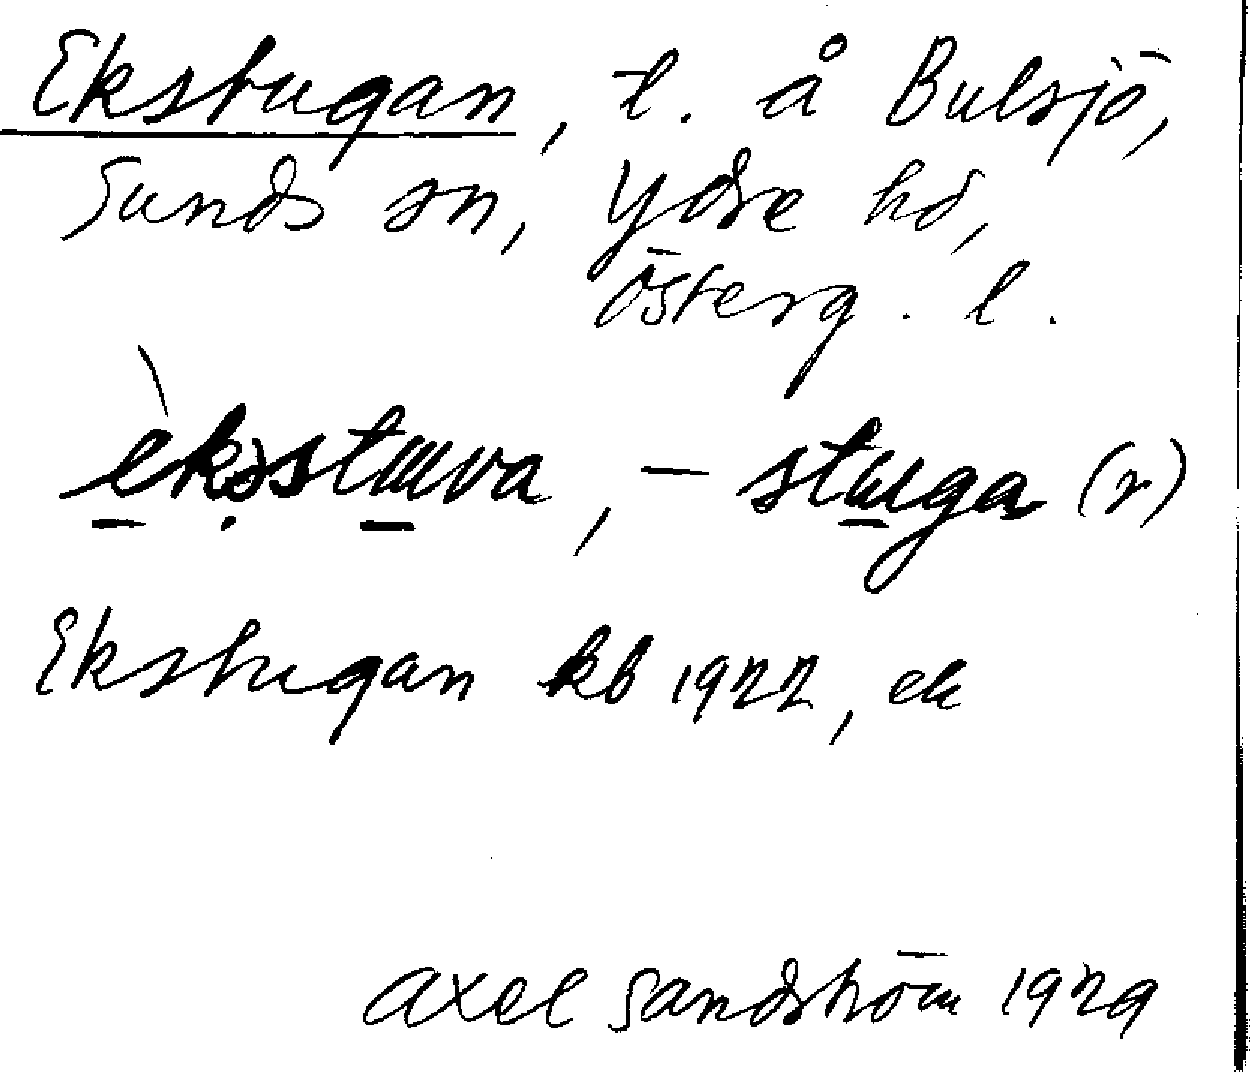 Ekstugan, t. å Bulsjö,
Sunds sn, Ydre hd,
Österg. l.
èksstuva, – stuga (r)
Ekstugan kb 1922, ek
Axel Sandström 1929